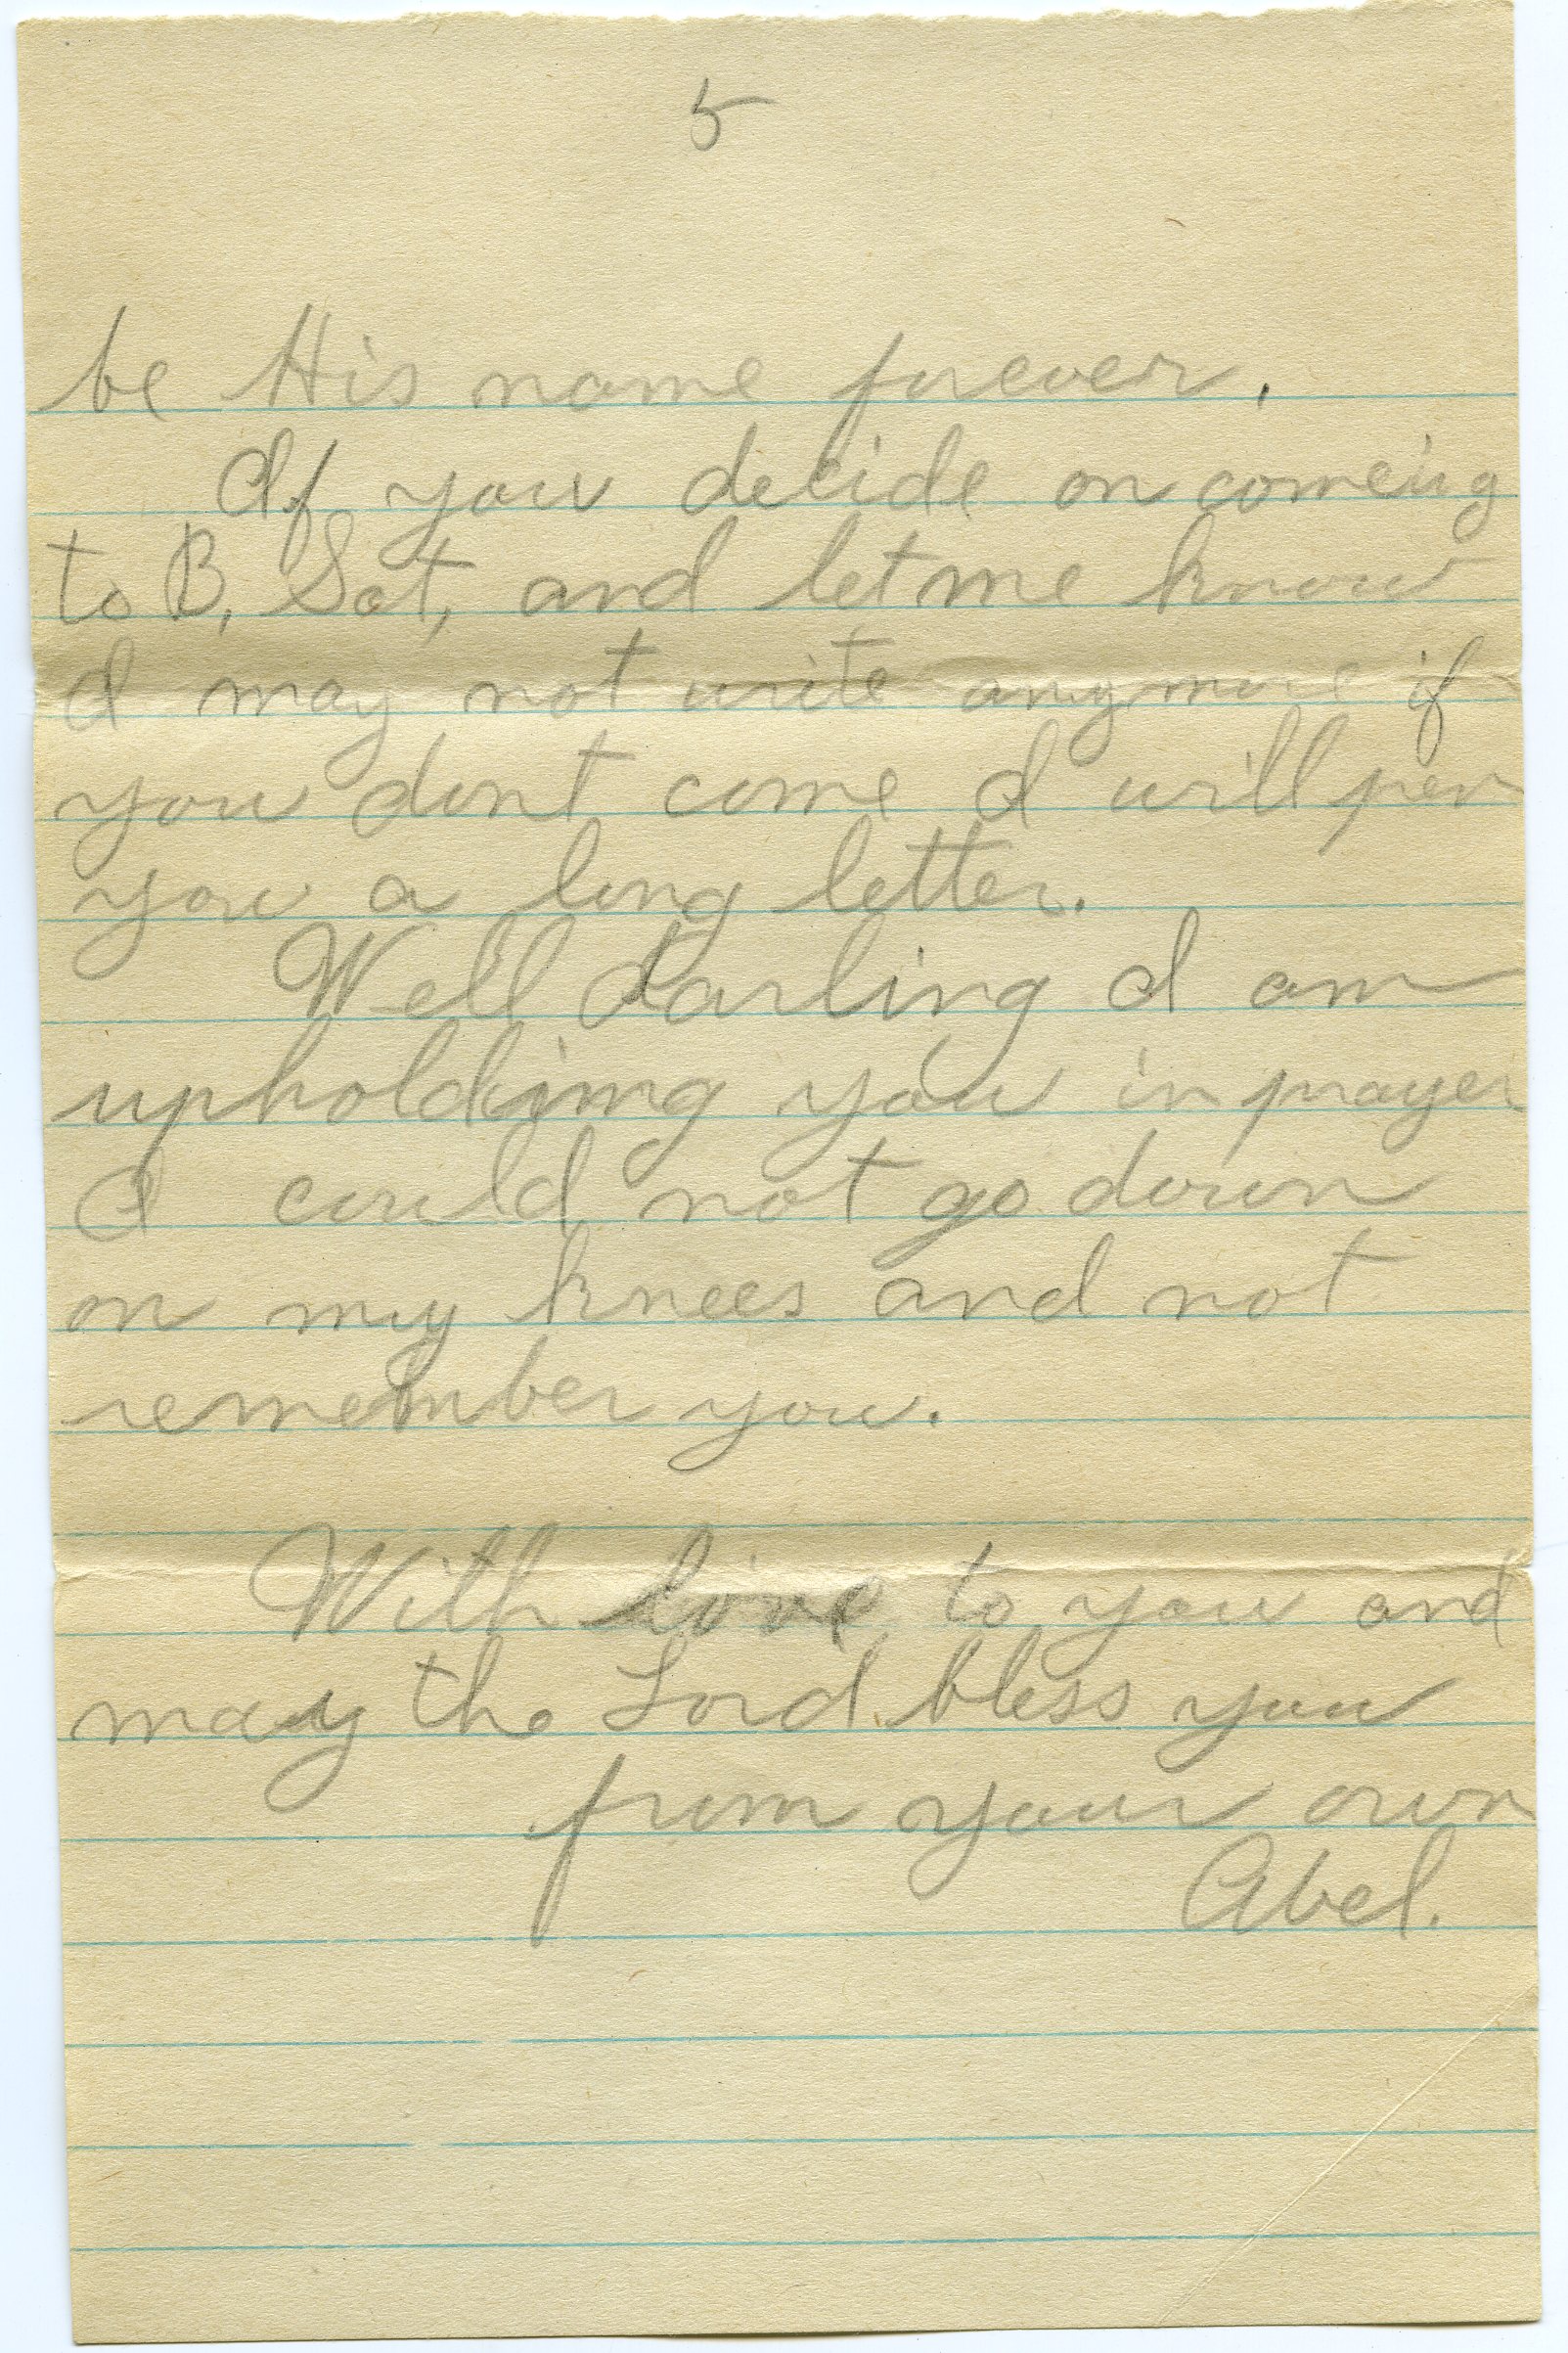 5
be His name forever.
If you decide on comeing
to B. Sat, and let me know
I may not write anymore if
you dont come I will pen
you a long letter.
Well darling I am
upholding you in prayer
I could not go down
on my knees and not
remember you.
With love to you and
may the Lord bless you
from your own
Abel.